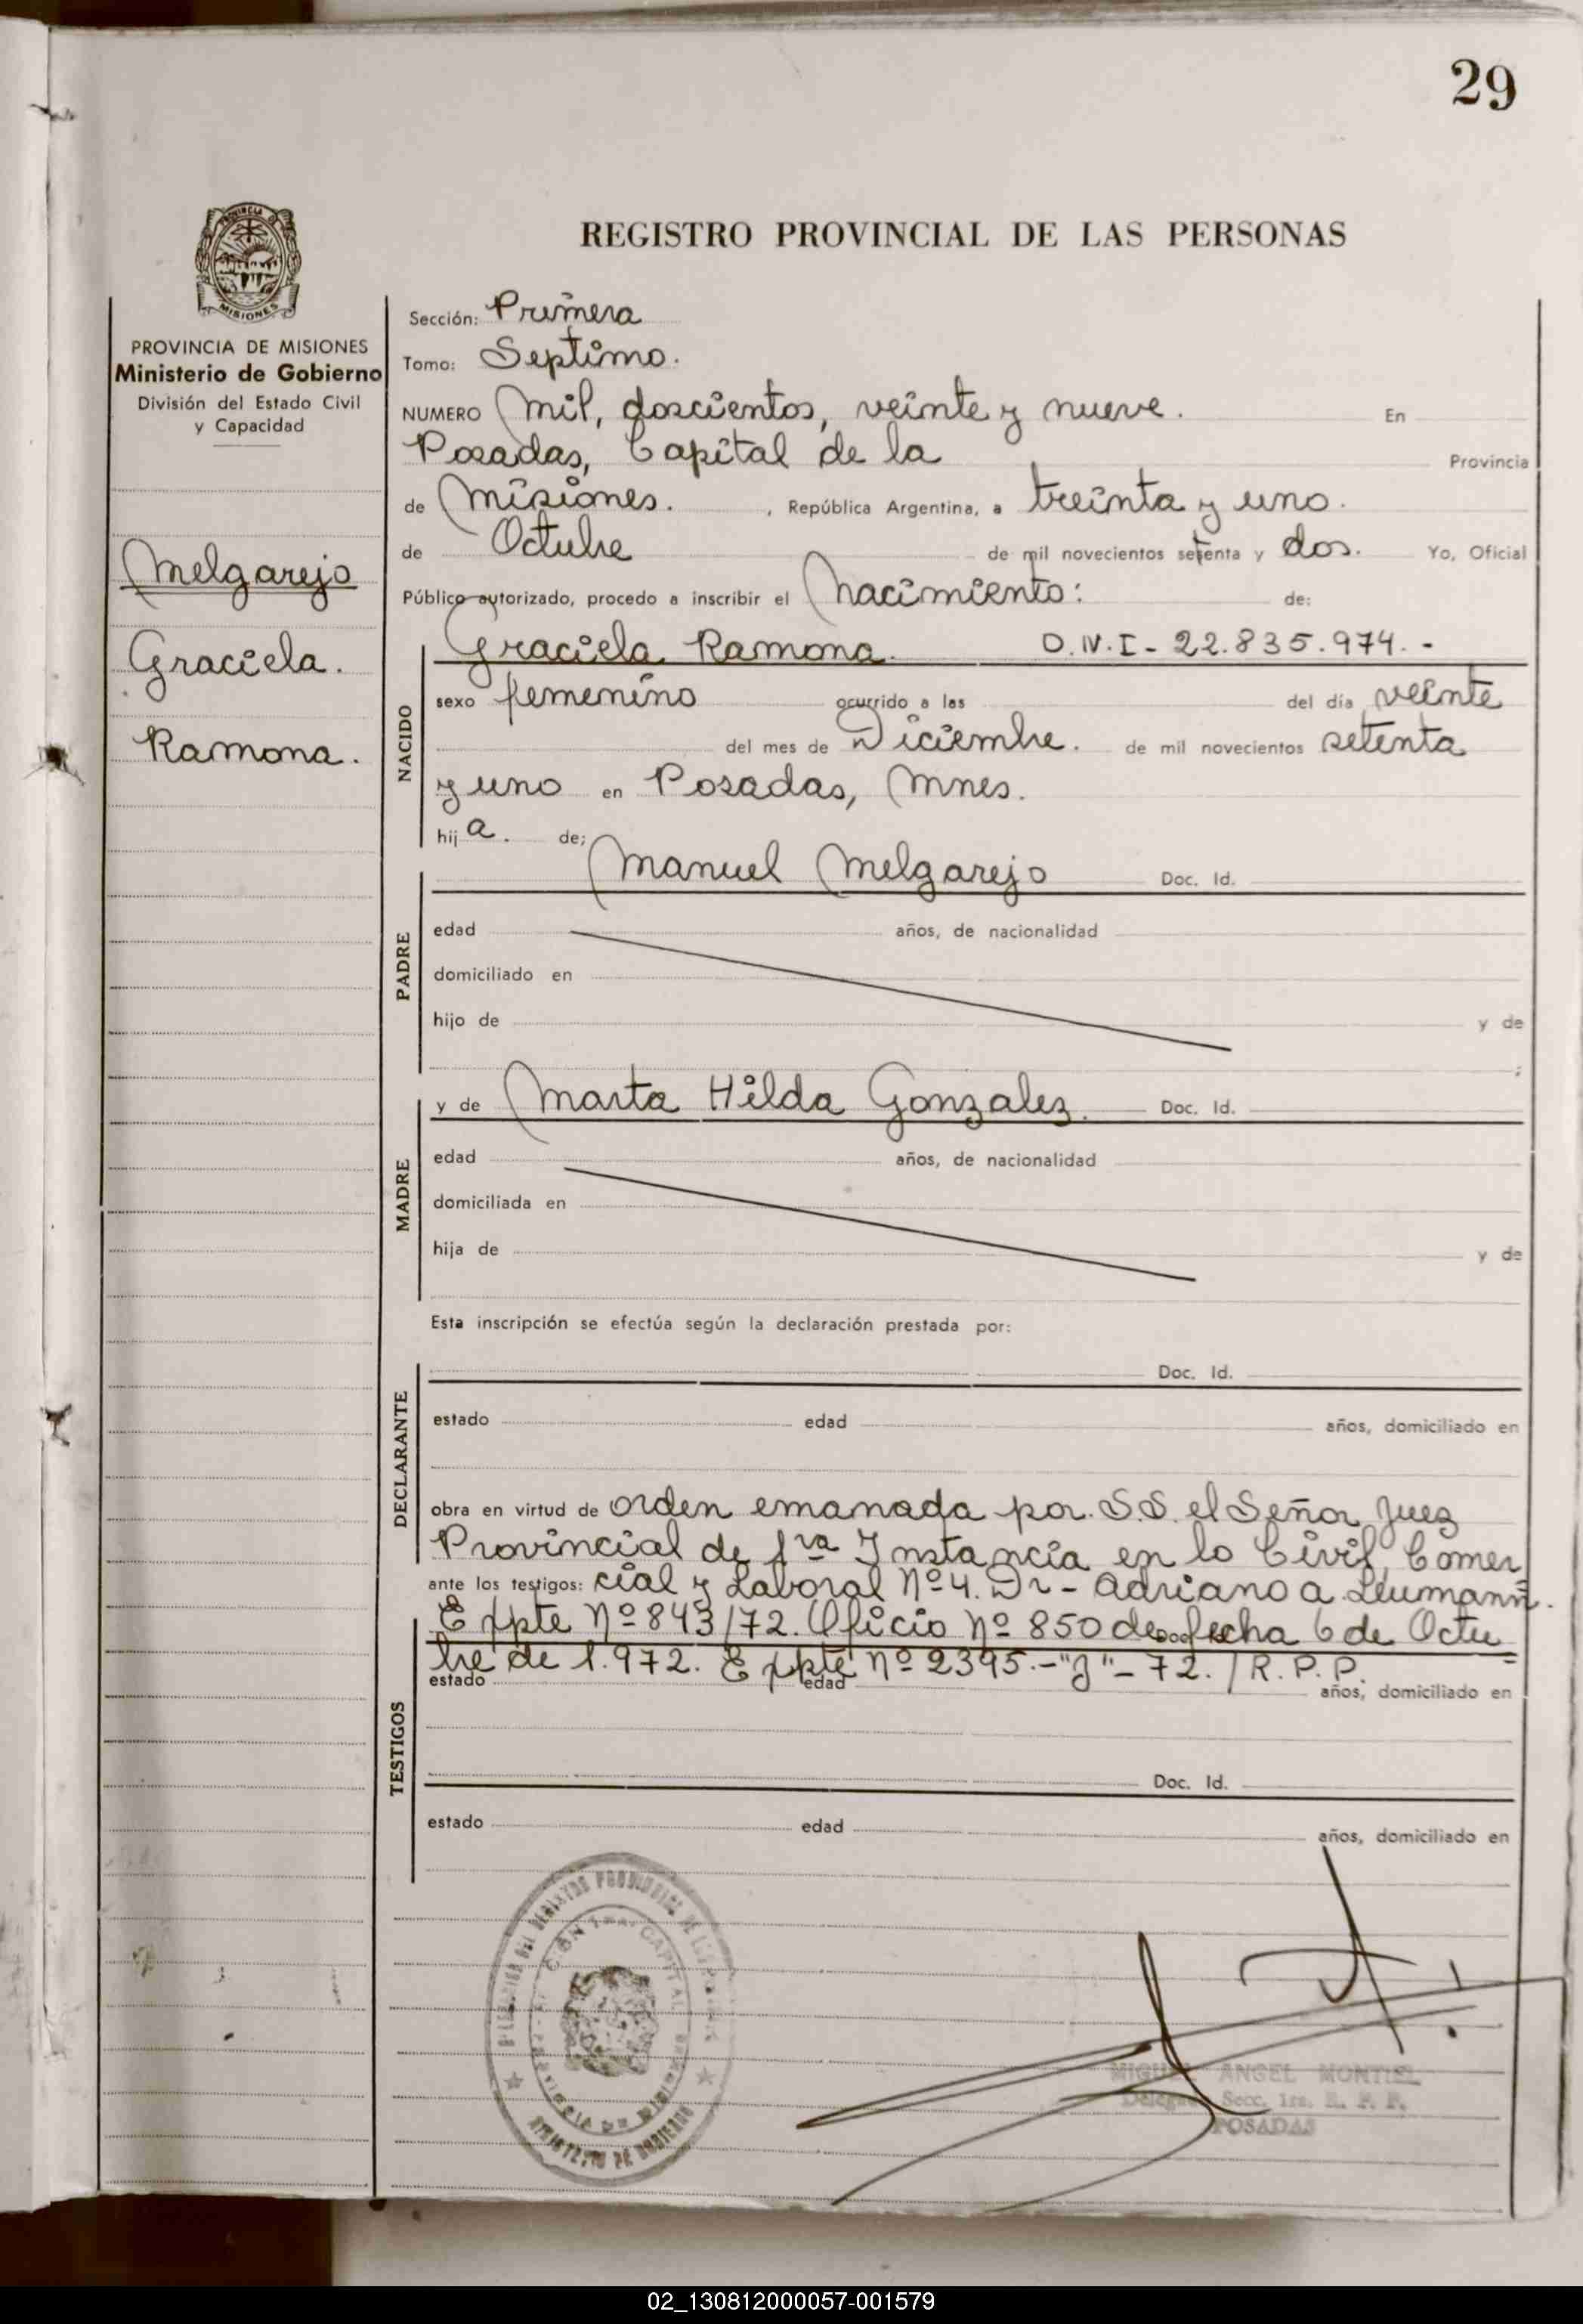 29
REGISTRO PROVINCIAL DE LAS PERSONAS
MISIONES
PROVINCIA DE MISIONES
Ministerio de Gobierno
División del Estado Civil
y Capacidad
Melgarejo
Graciela.
Ramona.
Sección: Primera
Tomo: Septimo.
NUMERO Mil, doscientos, veinte y nueve. En
Posadas, Capital de la Provincia
de Misiones. , República Argentina, a treinta y uno.
de Octubre de mil novecientos setenta y dos. Yo, Oficial
Público autorizado, procedo a inscribir el Nacimiento: de:
Graciela Ramona. D.N.I - 22.835.974. -
NACIDO
sexo femenino ocurrido a las del día veinte
del mes de Diciembre. de mil novecientos setenta
y uno en Posadas, Mnes.
hij a. de;
Manuel Melgarejo Doc. Id.
PADRE
edad años, de nacionalidad
domiciliado en
hijo de y de
;
y de Marta Hilda Gonzalez. Doc. Id.
MADRE
edad años, de nacionalidad
domiciliada en
hija de y de
Esta inscripción se efectúa según la declaración prestada por:
Doc. Id.
DECLARANTE
estado edad años, domiciliado en
obra en virtud de orden emanada por. S.S. el Señor Juez
Provincial de 1ra Instancia en lo Civil, Comer
ante los testigos: cial y Laboral Nº 4. Dr - Adriano A.
Expte Nº 843/72. Oficio Nº 850 de fecha 6 de Octu=
bre de 1.972. Expte Nº 2395.-"J"- 72. / R.P.P.
TESTIGOS
estado edad años, domiciliado en
Doc. Id.
estado edad años, domiciliado en
MINISTERIO DE GOBIERNO
MIGUEL ANGEL MONTIEL
Secc. 1ra. R. P. P.
POSADAS
02_130812000057-001579